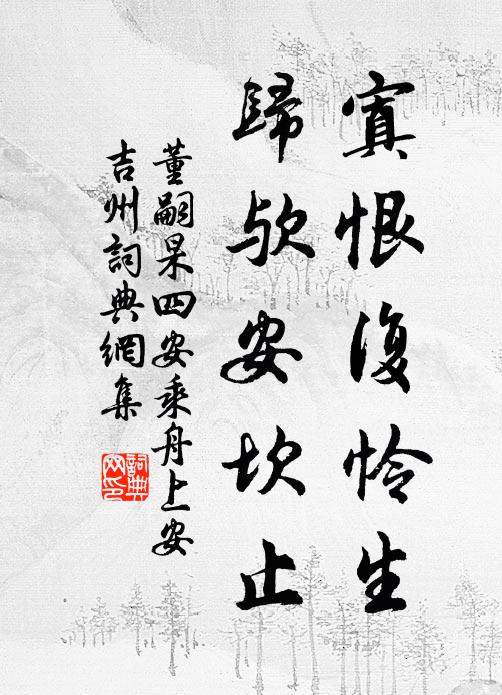 寘恨復怜生
歸欤安坎止
董嗣杲四安乘舟上安
吉州詞典網集
詞典网印